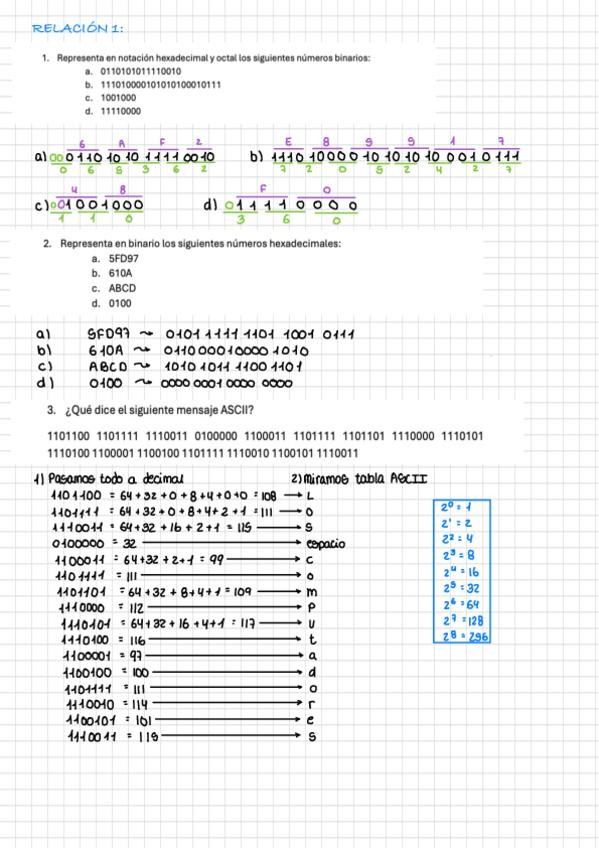 RELACIÓN 1:
1. Representa en notación hexadecimal y octal los siguientes números binarios:
a. 0110101011110010
b. 111010000101010100010111
c. 1001000
d. 11110000
6 A F 2 E 8 5 5 1 7
a) 00 0110 1010 1111 0010 b) 1110 1000 0101 0101 0001 0111
0 6 5 3 6 2 7 2 0 5 2 4 2 7
4 8 F 0
c) 00100 1000 d) 01111 0000
1 1 0 3 6 0
2. Representa en binario los siguientes números hexadecimales:
a. 5FD97
b. 610A
c. ABCD
d. 0100
a) 5FD97 ~> 0101 1111 1101 1001 0111
b) 610A ~> 0110 0001 0000 1010
c) ABCD ~> 1010 1011 1100 1101
d) 0100 ~> 0000 0001 0000 0000
3. ¿Qué dice el siguiente mensaje ASCII?
1101100 1101111 1110011 0100000 1100011 1101111 1101101 1110000 1110101
1110100 1100001 1100100 1101111 1110010 1100101 1110011
1) Pasamos todo a decimal 2) Miramos tabla ASCII
1101100 = 64 + 32 + 0 + 8 + 4 + 0 + 0 = 108 → L
1101111 = 64 + 32 + 0 + 8 + 4 + 2 + 1 = 111 → O
1110011 = 64 + 32 + 16 + 2 + 1 = 115 → S
0100000 = 32 → espacio
1100011 = 64 + 32 + 2 + 1 = 99 → c
1101111 = 111 → o
1101101 = 64 + 32 + 8 + 4 + 1 = 109 → m
1110000 = 112 → p
1110101 = 64 + 32 + 16 + 4 + 1 = 117 → u
1110100 = 116 → t
1100001 = 97 → a
1100100 = 100 → d
1101111 = 111 → o
1110010 = 114 → r
1100101 = 101 → e
1110011 = 115 → s
2⁰ = 1
2¹ = 2
2² = 4
2³ = 8
2⁴ = 16
2⁵ = 32
2⁶ = 64
2⁷ = 128
2⁸ = 296